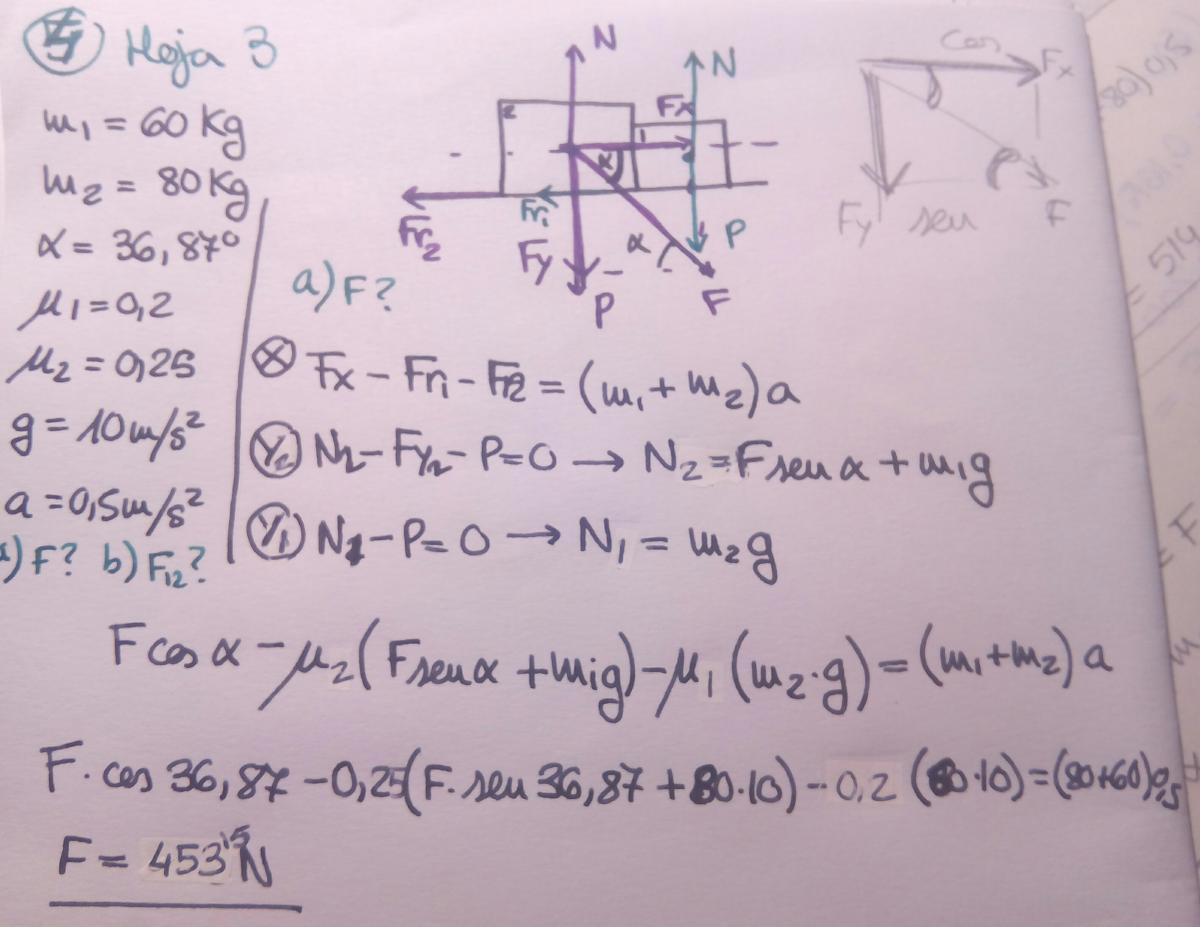 5 Hoja 3
m₁ = 60 Kg
m₂ = 80 Kg
α = 36,87º
μ₁ = 0,2
μ₂ = 0,25
g = 10 m/s²
a = 0,5 m/s²
a) F? b) F₁₂?
N N
2 Fx 1
α
Fr₂ Fr₁ Fy P α P F
cos Fx
Fy sen F
a) F?
(X) Fx − Fr₁ − Fr2 = (m₁ + m₂) a
(Y₂) N₂ − Fy₂ − P = 0 → N₂ = F sen α + m₁g
(Y₁) N₁ − P = 0 → N₁ = m₂g
F cos α − μ₂ (F sen α + m₁g) − μ₁ (m₂·g) = (m₁+m₂) a
F · cos 36,87 − 0,25 (F. sen 36,87 + 80·10) − 0,2 (60·10) = (80+60) 0,5
F = 453'5 N
80) 0,5
= 514
= F